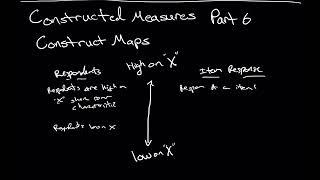 Constructed Measures Part 6
Construct Maps
High on "X"
Respondents
Respondents are high on
"X" share some
characteristic
Respondents low on X
Item Response
Respon to an item 1
low on "X"